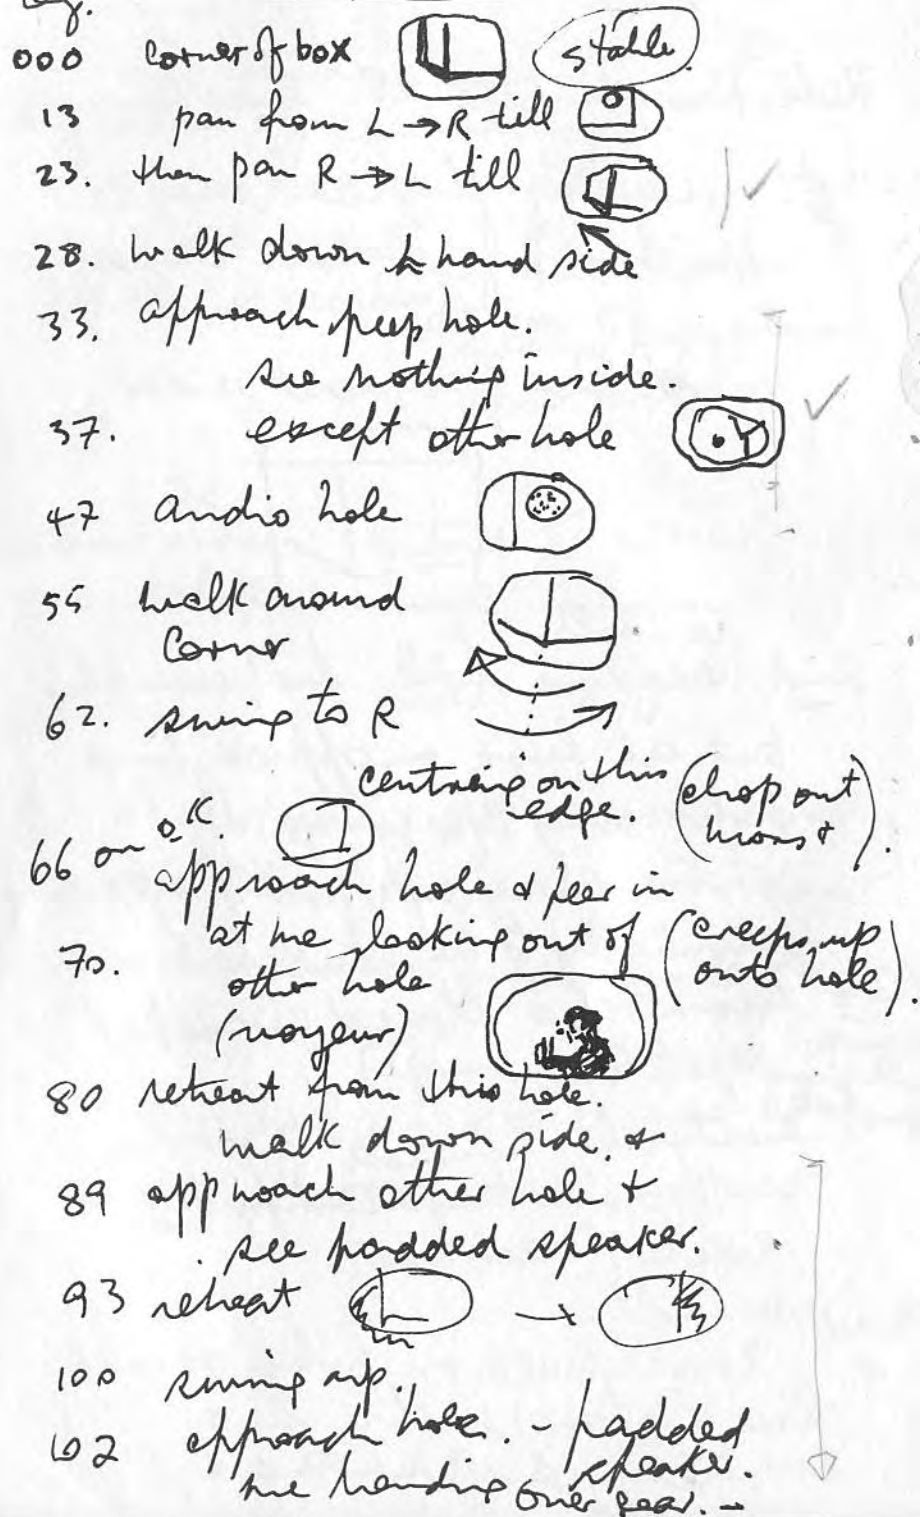 000 corner of box stable.
13 pan from L → R till
23. then pan R → L till
28. walk down L hand side
33. approach peep hole.
see nothing inside.
37. except other hole
47 audio hole
55 walk around
corner
62. swing to R
centreing on this
edge. (chop out
66 on OK.
approach hole & peer in
70. at me looking out of (creeps up
other hole onto hole).
(voyeur)
80 retreat from this hole.
walk down side. &
89 approach other hole +
see padded speaker.
93 retreat →
100 swing up.
102 approach hole. - padded
speaker.
me handing over gear. -